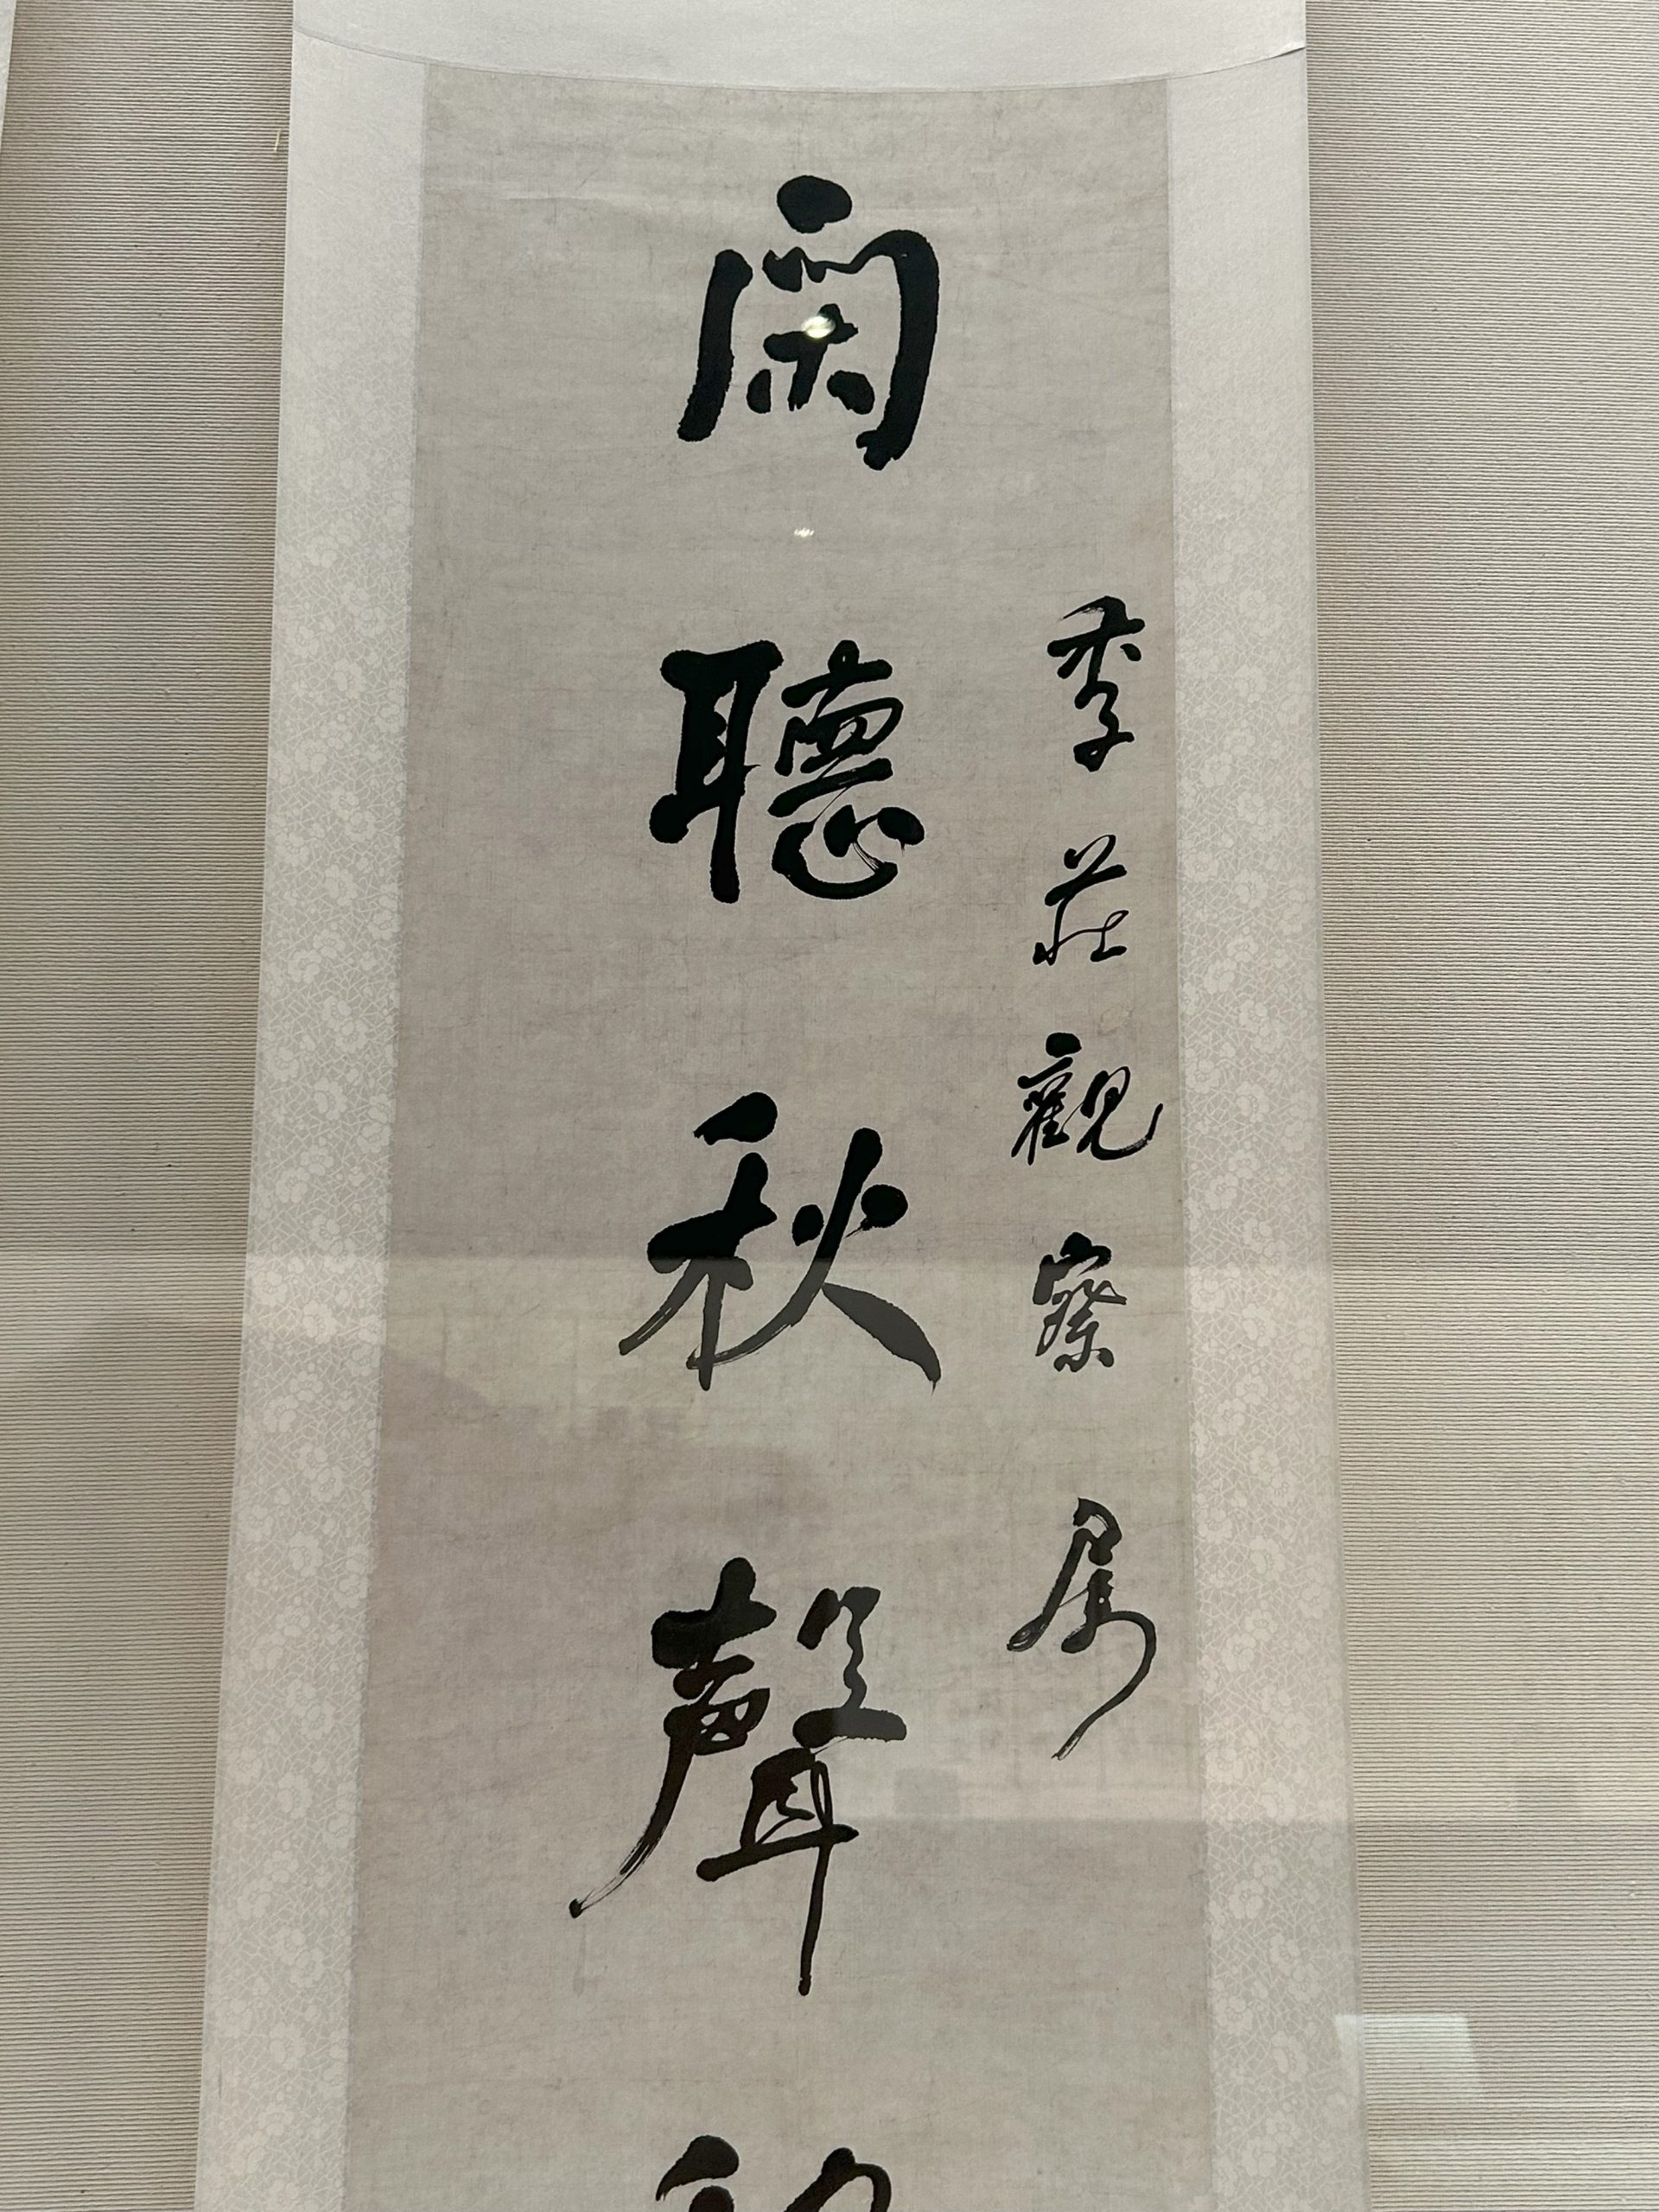 季莊觀察属
閑聽秋聲